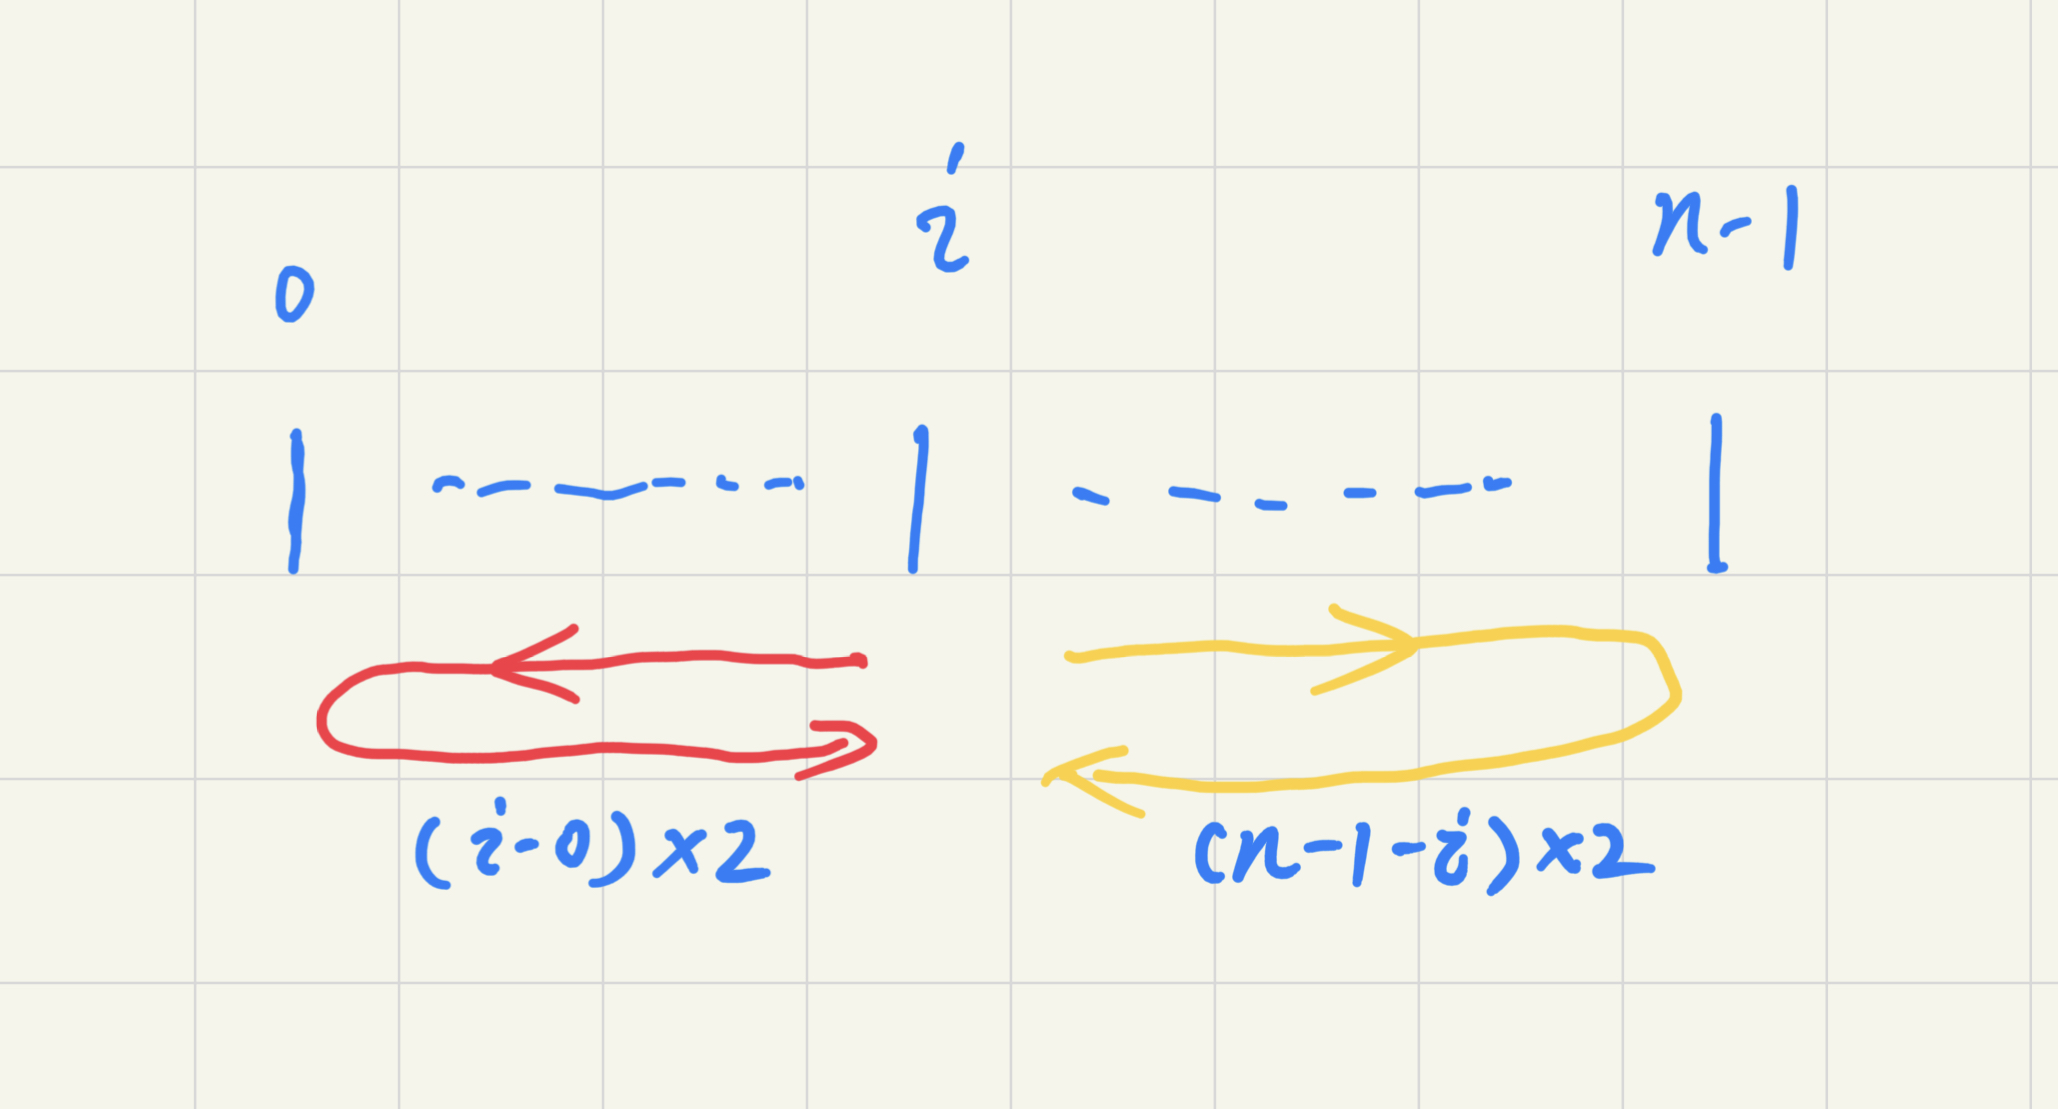 0 i n-1
(i-0)×2 (n-1-i)×2